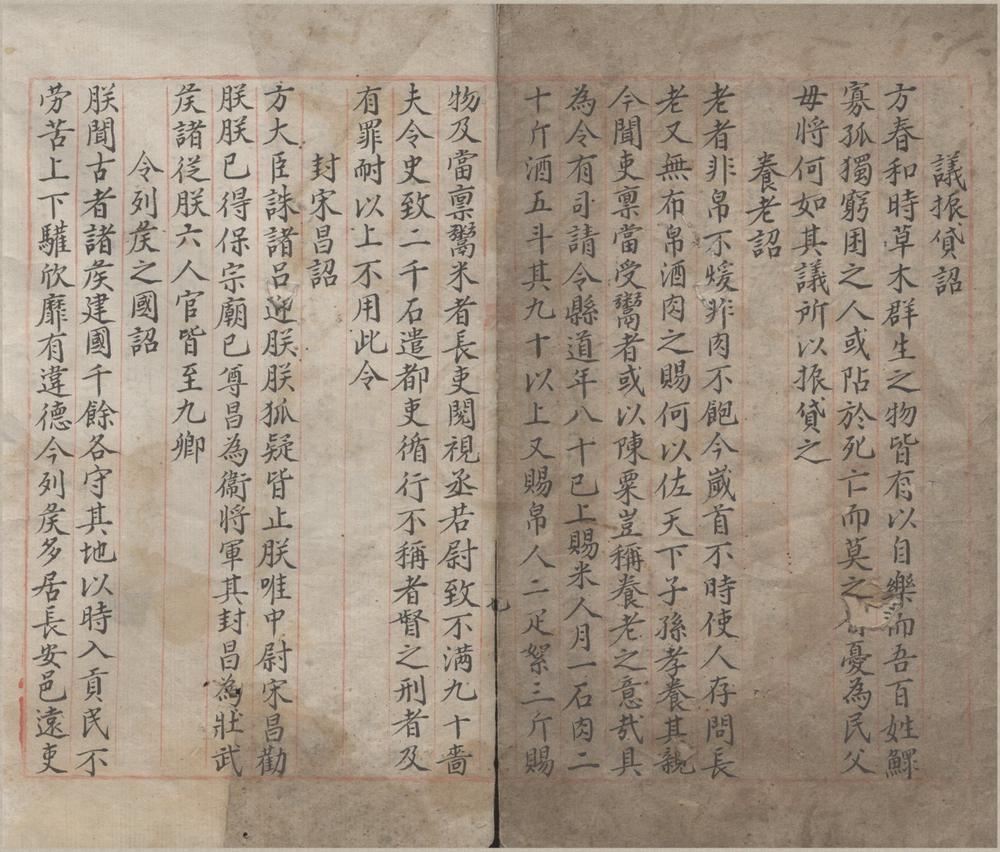 議振貸詔
方春和時草木群生之物皆有以自樂而吾百姓鰥
寡孤獨窮困之人或阽於死亡而莫之憂為民父
母將何如其議所以振貸之
養老詔
老者非帛不煖非肉不飽今歲首不時使人存問長
老又無布帛酒肉之賜何以佐天下子孫孝養其親
今聞吏禀當受鬻者或以陳粟豈稱養老之意哉具
為令有司請令縣道年八十已上賜米人月一石肉二
十斤酒五斗其九十以上又賜帛人二疋絮三斤賜
物及當禀鬻米者長吏閱視丞若尉致不滿九十嗇
夫令史致二千石遣都吏循行不稱者督之刑者及
有罪耐以上不用此令
封宋昌詔
方大臣誅諸呂迎朕朕狐疑皆止朕唯中尉宋昌勸
朕朕已得保宗廟已尊昌為衞將軍其封昌為壯武
矦諸從朕六人官皆至九卿
令列矦之國詔
朕聞古者諸矦建國千餘各守其地以時入貢民不
勞苦上下驩欣靡有違德今列矦多居長安邑遠吏